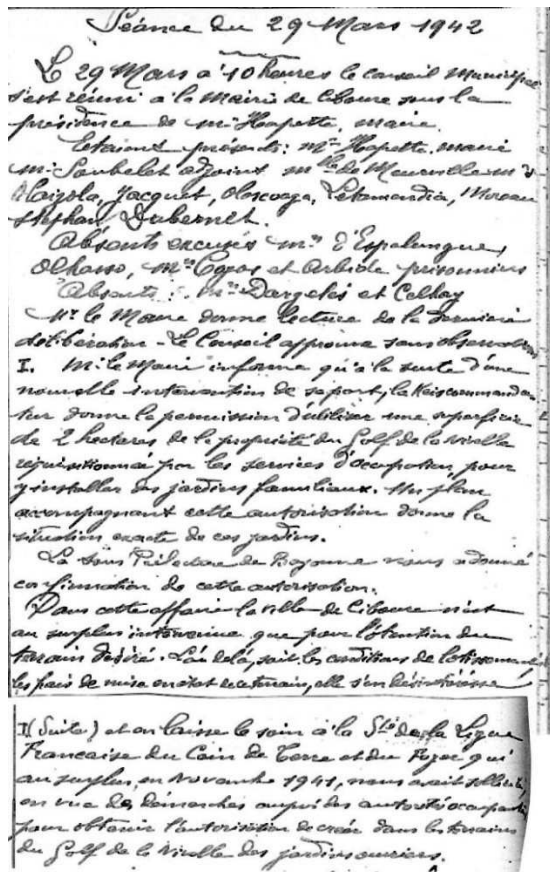 Séance du 29 Mars 1942
Le 29 Mars à 10 heures le conseil municipal
s'est réuni à la Mairie de Ciboure sous la
présidence de Mr Hapette, maire.
Etaient présents: Mr Hapette, maire
Mr Soubelet adjoint Mlle de Meurville Mrs
Alaizola, Jacquet, Oloscoaga, Letamendia, Moreau
Stephan, Dubernet.
Absents excusés Mrs d'Espalungue,
Olhasso, Mrs et Arbide prisonniers
Absents: Mrs Dargelés et Celhay
Mr le Maire donne lecture de la dernière
délibération - Le Conseil approuve sans observation
I. Mr le Maire informe qu'à la suite d'une
nouvelle intervention de sa part, la Kreiscommandan
tur donne la permission d'utiliser une superficie
de 2 hectares de la propriété du Golf de la Nivelle
réquisitionnée par les services d'occupation, pour
y installer des jardins familiaux. Un plan
accompagnant cette autorisation donne la
situation exacte de ces jardins.
La Sous Préfecture de Bayonne nous a donné
confirmation de cette autorisation.
Dans cette affaire la ville de Ciboure n'est
au surplus intervenue que pour l'obtention du
terrain désiré. Au delà, soit les conditions de lotissement
les frais de mise en état de ce terrain, elle s'en désintéresse
I (Suite) et on laisse le soin à la Sté de la Ligue
Française du Coin de Terre et du Foyer qui
au surplus, en Novembre 1941, nous avait sollicités
en vue de démarches auprès des autorités occupantes
pour obtenir l'autorisation de créer dans les terrains
du Golf de la Nivelle des jardins ouvriers.